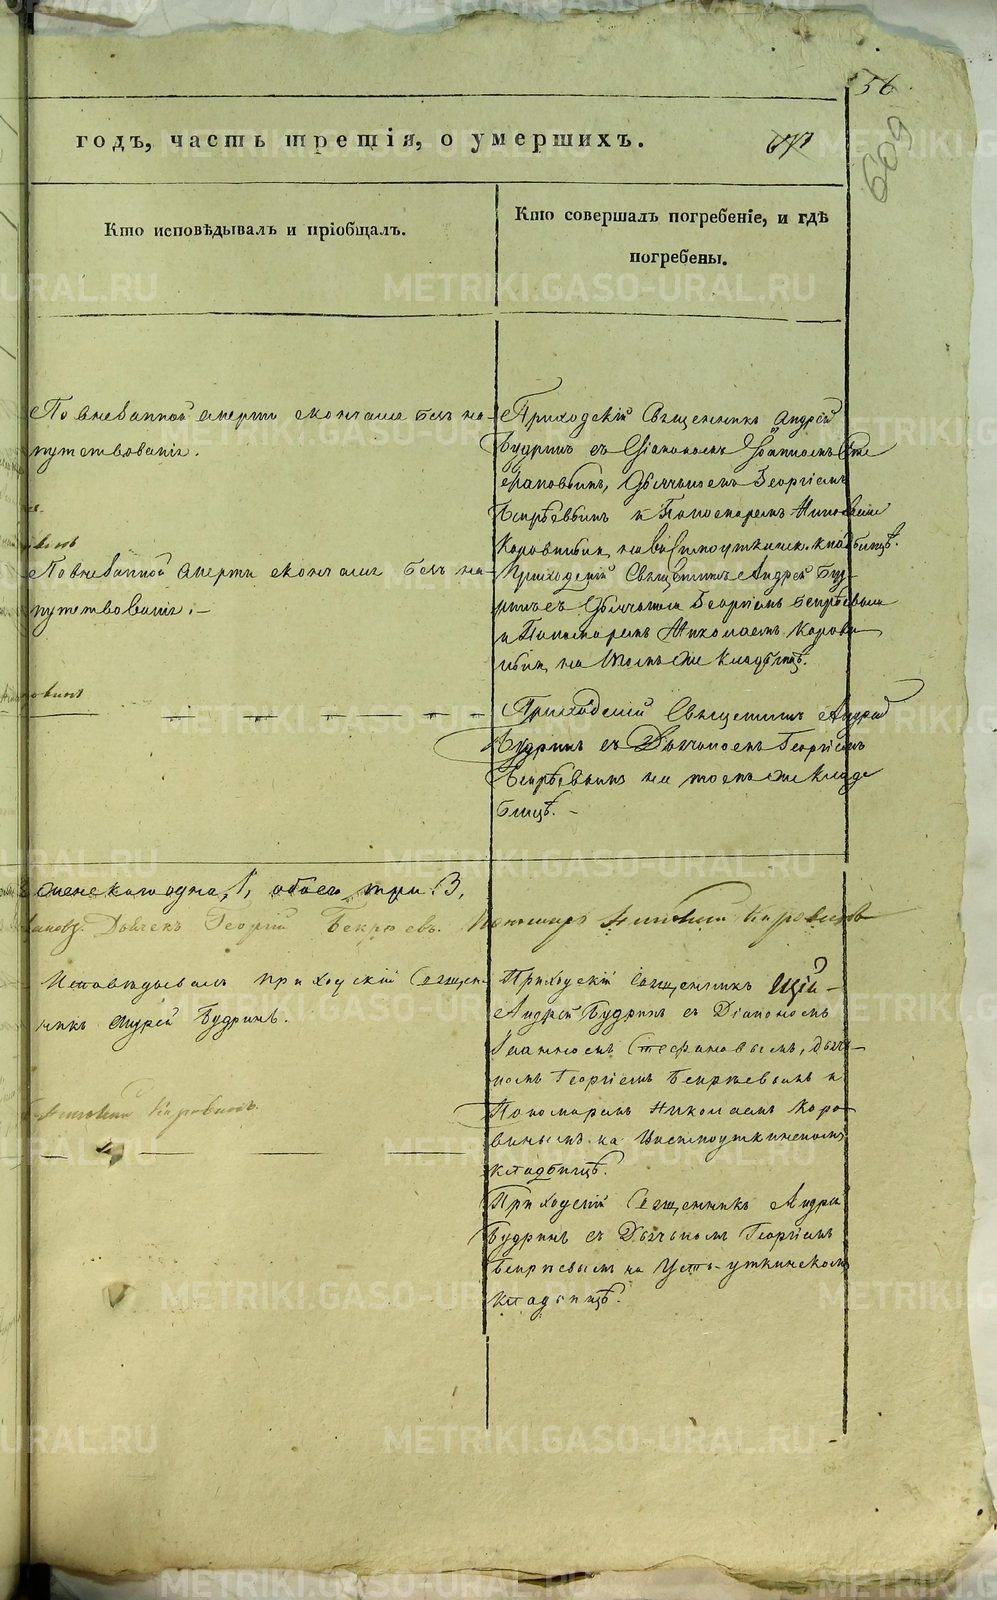 56
609
годъ, часть третія, о умершихъ.
Кто исповѣдывалъ и пріобщалъ.
Кто совершалъ погребеніе, и гдѣ
погребены.
По внезапной смерти скончался безъ на-
путствованія.
Приходскій Священникъ Андрей
Будринъ съ Діакономъ Іоанномъ Сте
фановымъ, Дьячкомъ Георгіемъ
Бекрѣевымъ и Пономаремъ Николаемъ
Коровинымъ, на Висимоуткинск. кладбищѣ.
По внезапной смерти скончался безъ на-
путствованія. –
Приходскій Священникъ Андрей Буд-
ринъ съ Дьячкомъ Георгіемъ Бекрѣевымъ
и Пономаремъ Николаемъ Корови
нымъ, на томъ же кладбищѣ.
Приходскій Священникъ Андрей
Будринъ съ Дьячкомъ Георгіемъ
Бекрѣевымъ на томъ же кладе
бищѣ. –
женскаго одна, 1, обоего три 3,
Дьячекъ Георгій Бекрѣевъ. Пономарь Николай Коровинъ
Исповѣдывалъ приходскій Священ-
никъ Андрей Будринъ.
Приходскій Священникъ
Андрей Будринъ съ Діакономъ
Іоанномъ Стефановымъ, Дьяч-
комъ Георгіемъ Бекрѣевымъ и
Пономаремъ Николаемъ Коро-
винымъ на Висимоуткинскомъ
кладбищѣ.
Николай Коровинъ.
Приходскій Священникъ Андрей
Будринъ съ Дьячкомъ Георгіемъ
Бекрѣевымъ на Усть-уткинскомъ
кладбищѣ.
METRIKI.GASO-URAL.RU